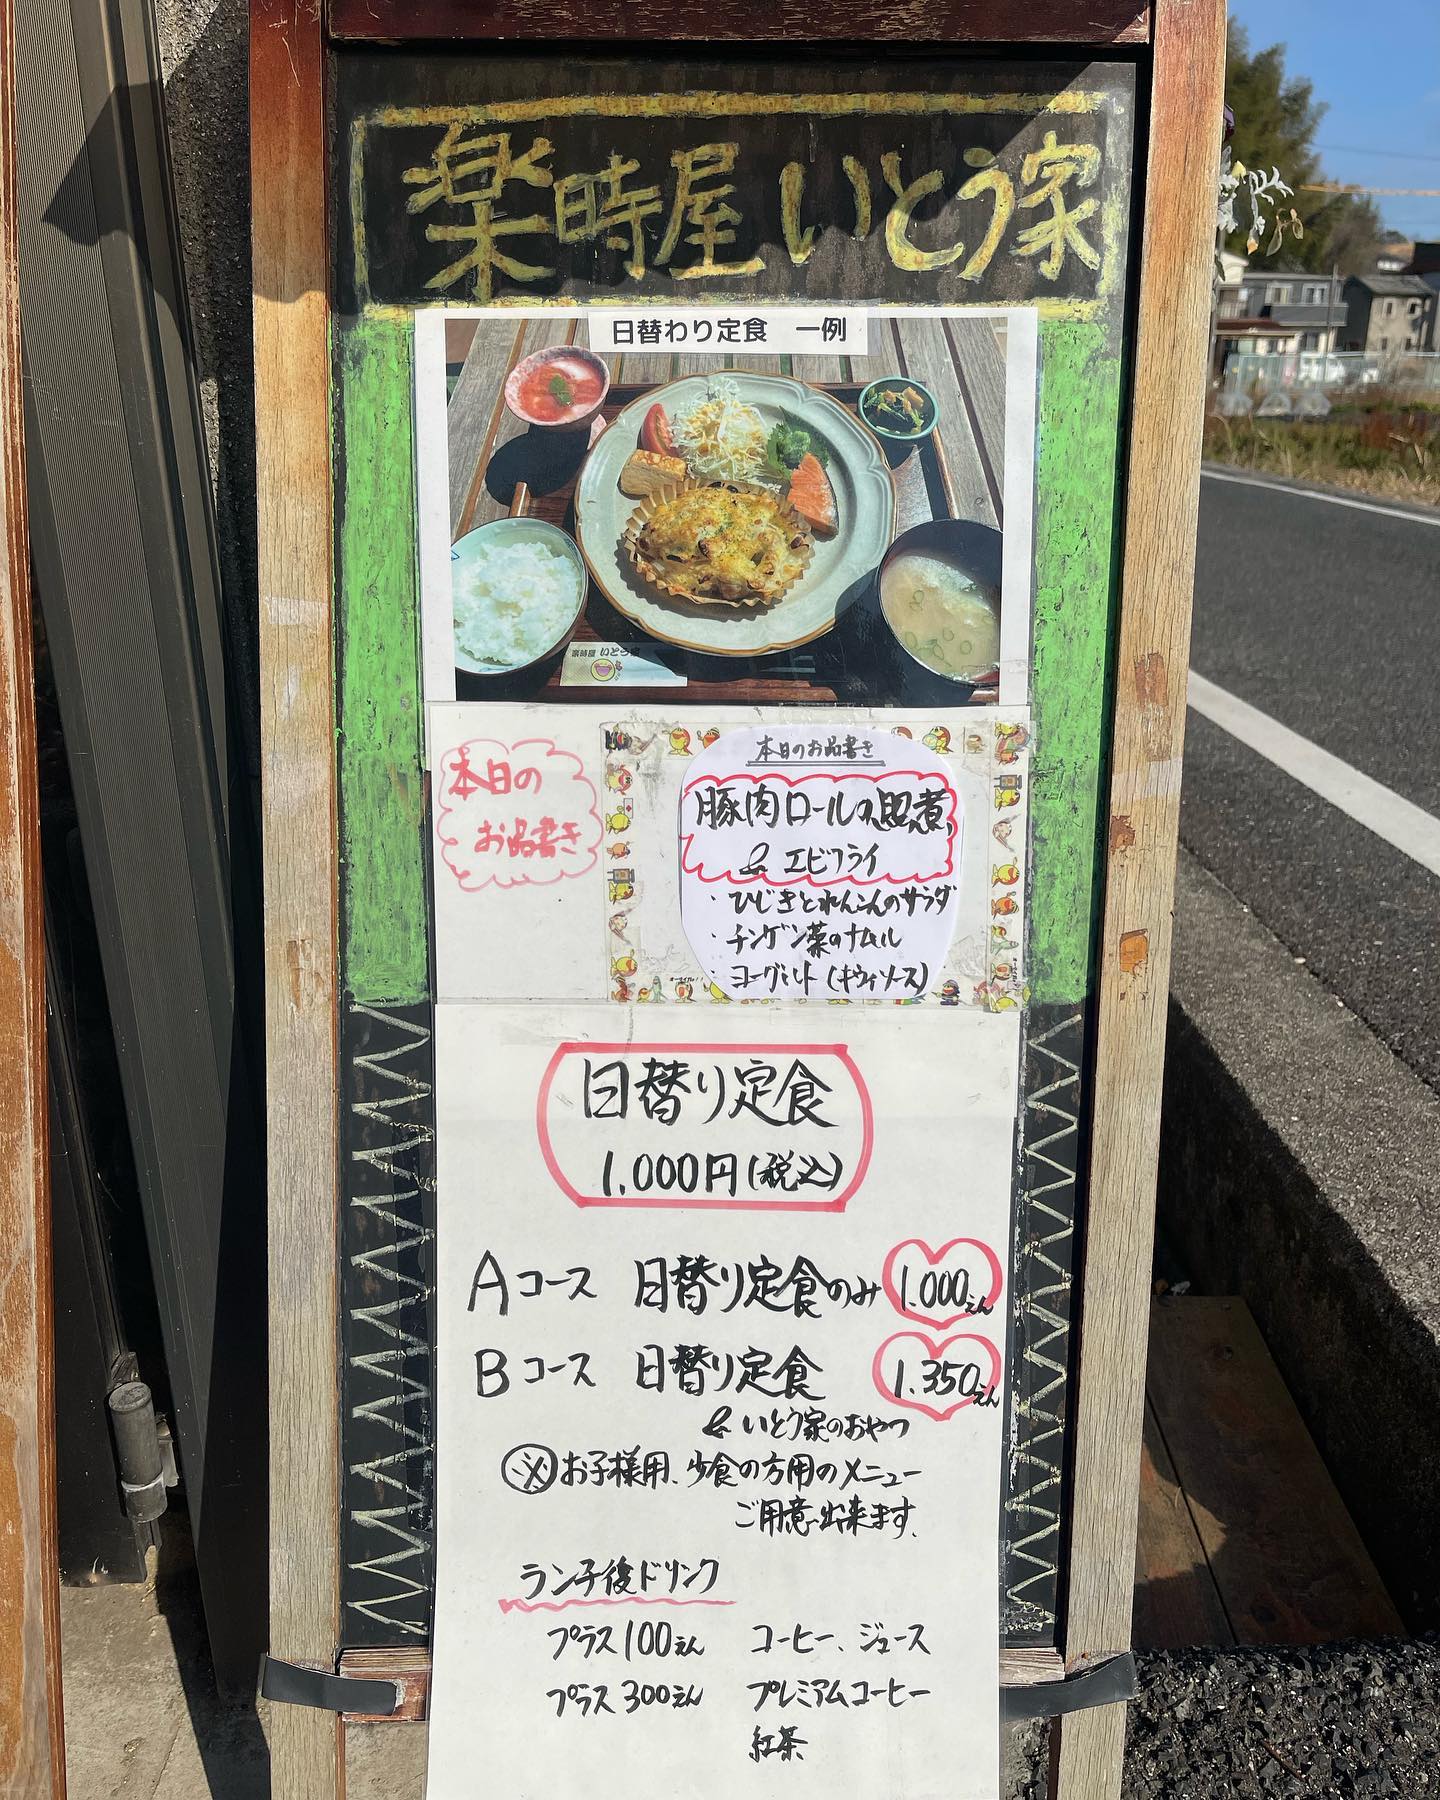 楽時屋 いとう家
日替わり定食 一例
楽時屋 いとう家
本日の
お品書き
本日のお品書き
豚肉ロールの照煮
& エビフライ
・ひじきとれんこんのサラダ
・チンゲン菜のナムル
・ヨーグルト(キウイソース)
日替り定食
1.000円(税込)
Aコース 日替り定食のみ 1.000えん
Bコース 日替り定食 1.350えん
& いとう家のおやつ
※お子様用、少食の方用のメニュー
ご用意出来ます。
ランチ後ドリンク
プラス100えん コーヒー、ジュース
プラス300えん プレミアムコーヒー
紅茶